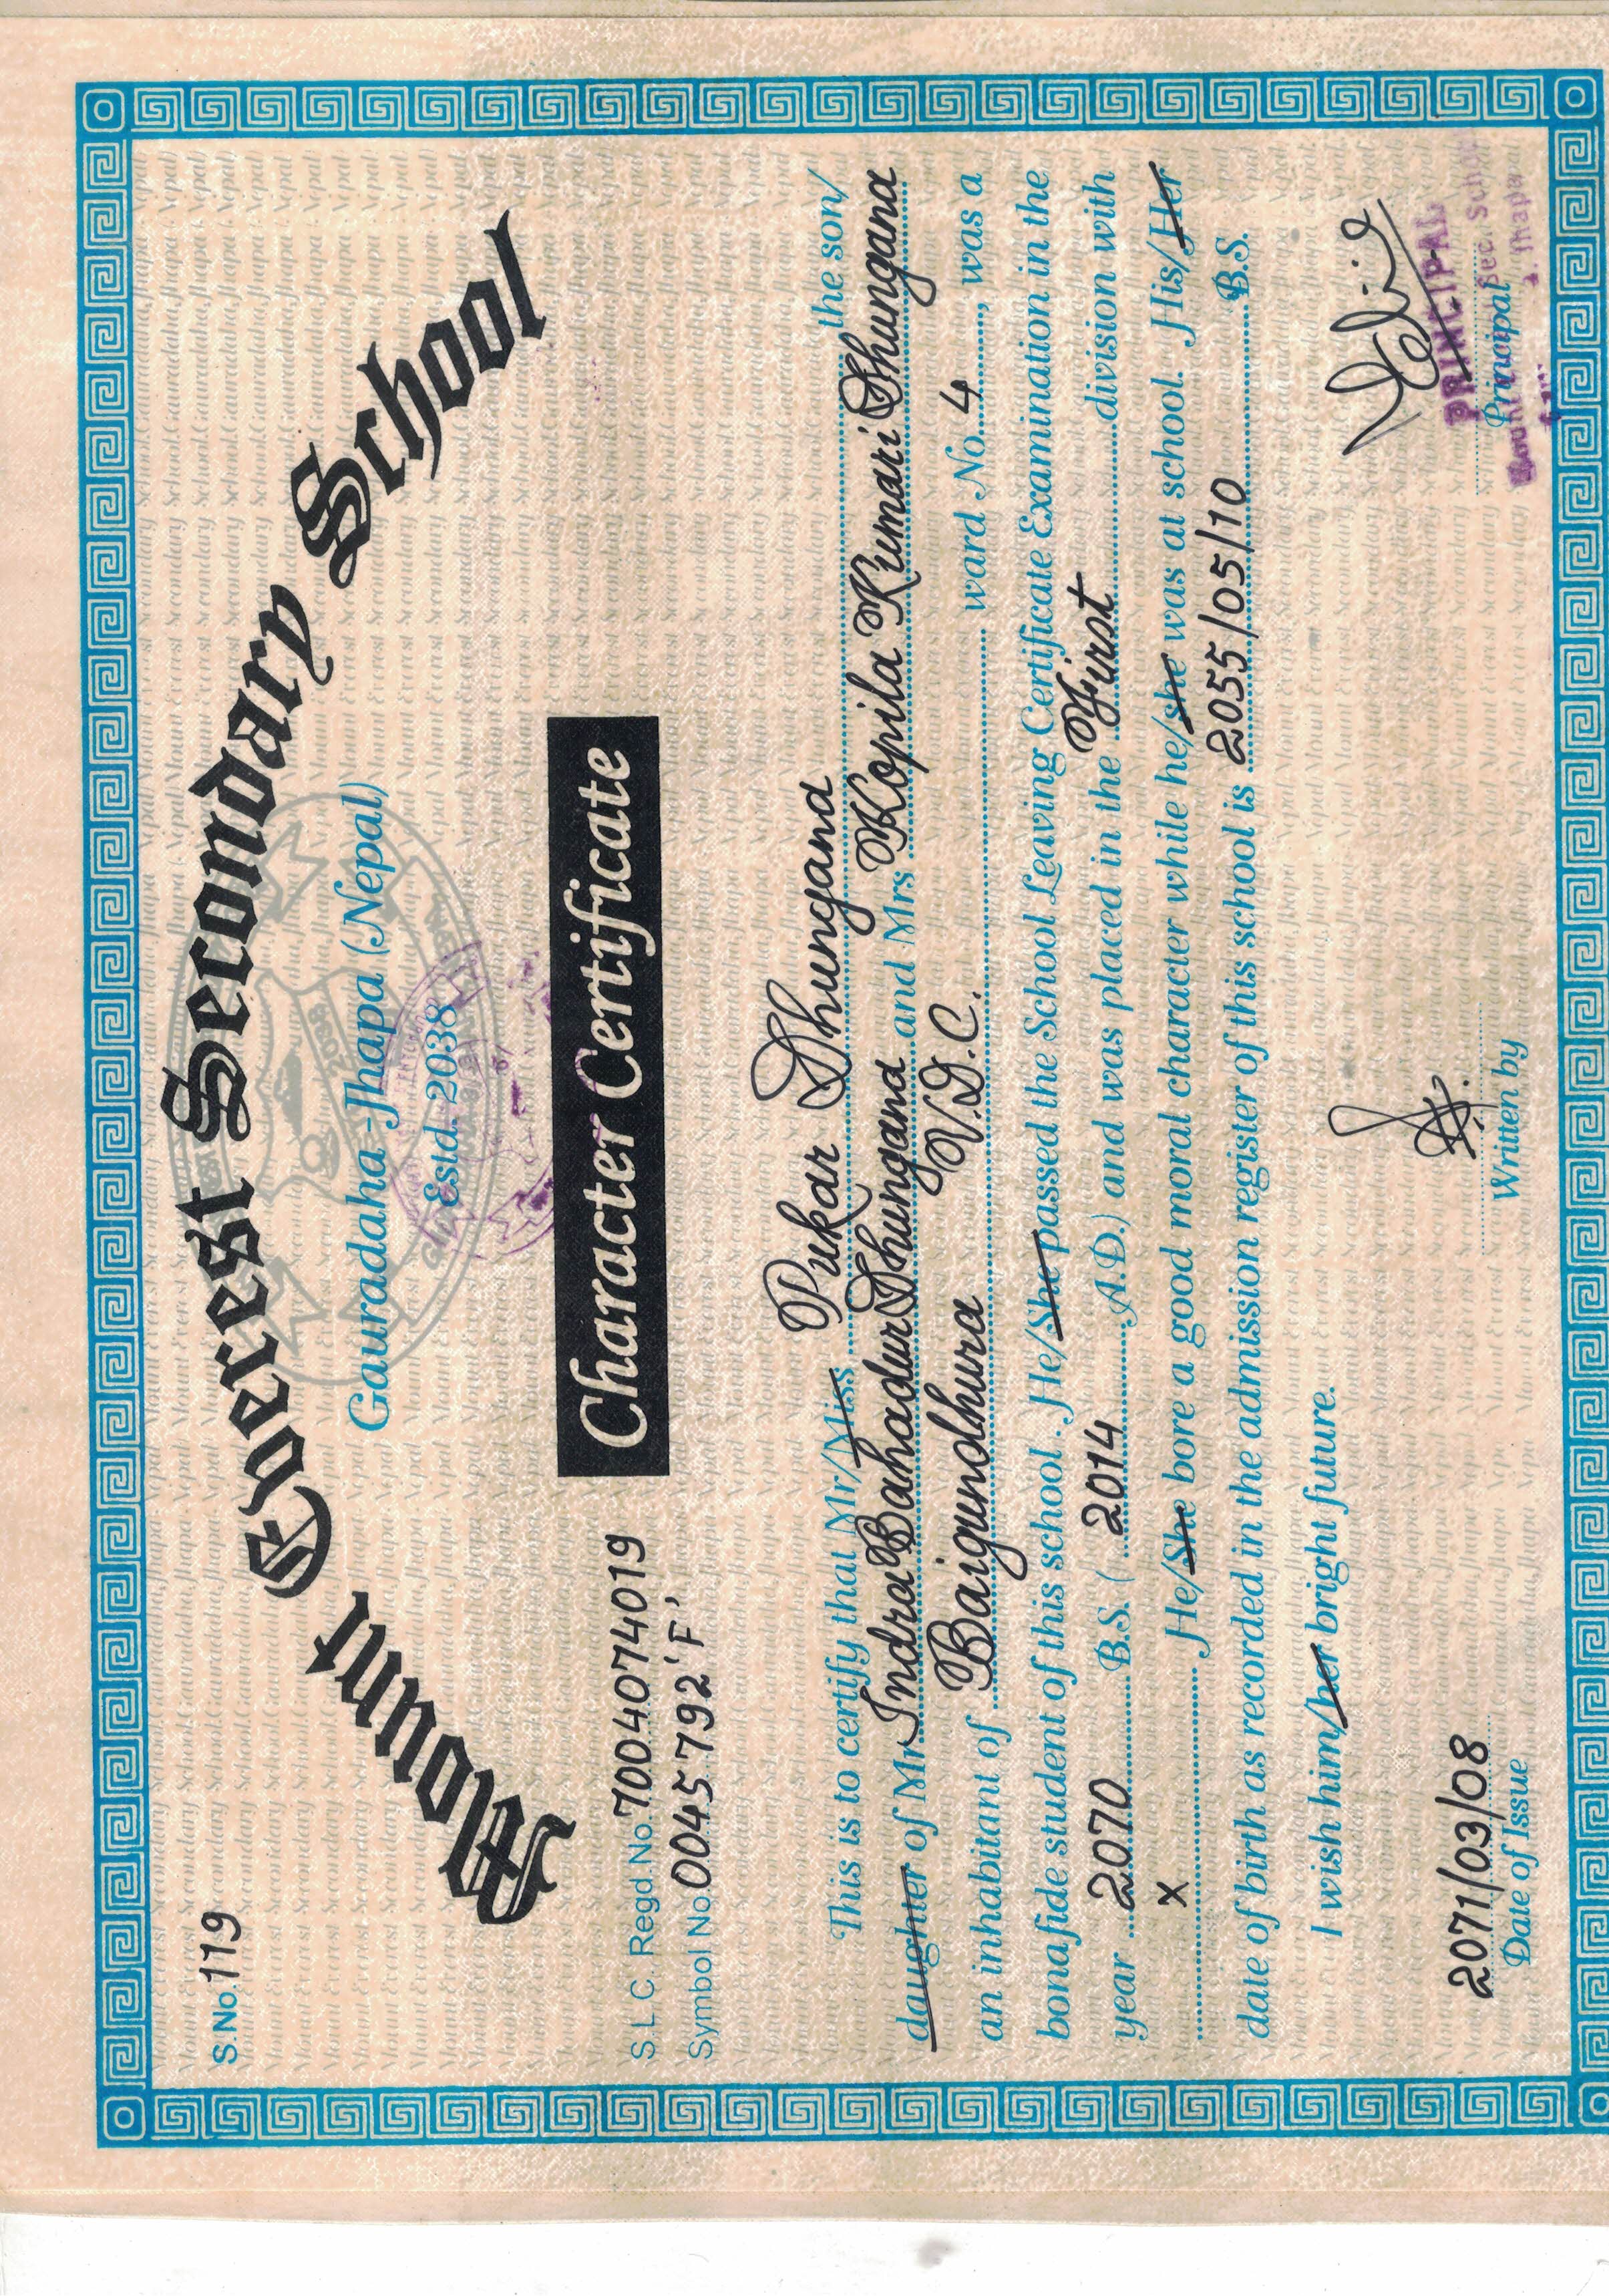 S.No. 119
Mount Everest Secondary School
Gauradaha-Jhapa (Nepal)
Estd. 2038
Character Certificate
S.L.C. Regd. No. 7004074019
Symbol No. 0045792 'F'
This is to certify that Mr/Miss Pukar Dhungana the son/
daughter of Mr Indra Bahadur Dhungana and Mrs Kopila Kumari Dhungana
an inhabitant of Baigundhura V.D.C. ward No. 4, was a
bonafide student of this school. He/She passed the School Leaving Certificate Examination in the
year 2070 B.S. (2014 A.D) and was placed in the First division with
x He/She bore a good moral character while he/she was at school. His/Her
date of birth as recorded in the admission register of this school is 2055/05/10 B.S.
I wish him/her bright future.
2071/03/08
Date of Issue
Written by
PRINCIPAL
Principal
Sec. School